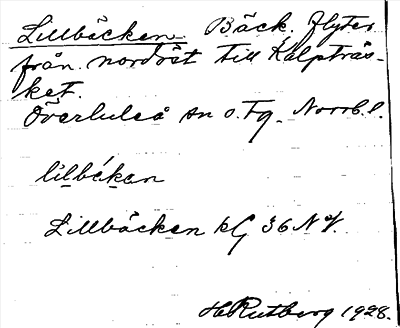 Lillbäcken Bäck, flyter
från nordöst till Kälpträs-
ket.
Överluleå sn o. Tg. Norrb. l.
lilbékan
Lillbäcken kG 36 NV.
H Rutberg 1928.